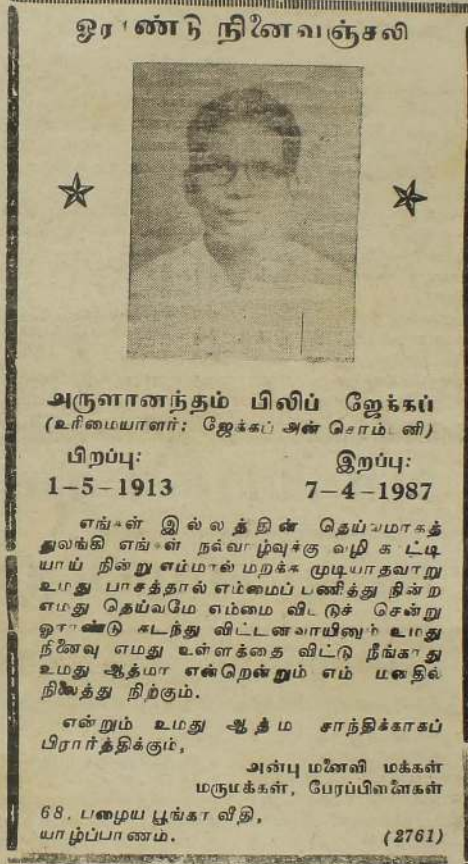 ஓராண்டு நினைவஞ்சலி
அருளானந்தம் பிலிப் ஜேக்கப்
(உரிமையாளர்: ஜேக்கப் அன் சொம்பனி)
பிறப்பு: இறப்பு:
1-5-1913 7-4-1987
எங்கள் இல்லத்தின் தெய்வமாகத்
துலங்கி எங்கள் நல்வாழ்வுக்கு வழி காட்டி
யாய் நின்று எம்மால் மறக்க முடியாதவாறு
உமது பாசத்தால் எம்மைப் பணித்து நின்ற
எமது தெய்வமே எம்மை விட்டுச் சென்று
ஓராண்டு கடந்து விட்டனவாயினும் உமது
நினைவு எமது உள்ளத்தை விட்டு நீங்காது
உமது ஆத்மா என்றென்றும் எம் மனதில்
நிலைத்து நிற்கும்.
என்றும் உமது ஆத்ம சாந்திக்காகப்
பிரார்த்திக்கும்,
அன்பு மனைவி மக்கள்
மருமக்கள், பேரப்பிள்ளைகள்
68. பழைய பூங்கா வீதி,
யாழ்ப்பாணம். (2761)